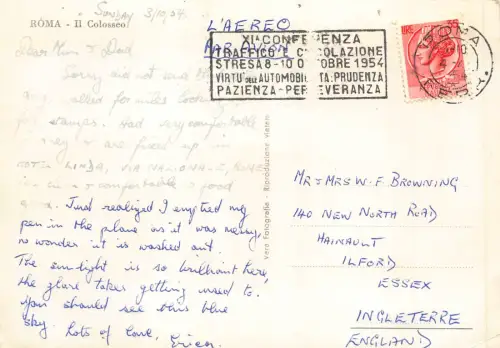 Sunday 3/10/54.
ROMA - Il Colosseo
L'AEREO
PAR AVION
XIª CONFERENZA
TRAFFICO E CIRCOLAZIONE
STRESA 8-10 OTTOBRE 1954
VIRTU' DELL'AUTOMOBILISTA: PRUDENZA
PAZIENZA - PERSEVERANZA
LIRE 55
ROMA
FERR.
Dear Mum & Dad
Sorry did not
walked for miles looking
for stamps. Had very comfortable
& are fixed up in
HOTEL LINDA, VIA NAZIONALE, ROMA
comfortable & good
Just realized I emptied my
pen in the plane as it was messy,
no wonder it is washed out.
The sunlight is so brilliant here,
the glare takes getting used to.
You should see this blue
sky. Lots of love, Erica.
Vera Fotografia - Riproduzione Vietata
MR & MRS W. F. BROWNING
140 NEW NORTH ROAD
HAINAULT
ILFORD
ESSEX
INGLETERRE
ENGLAND